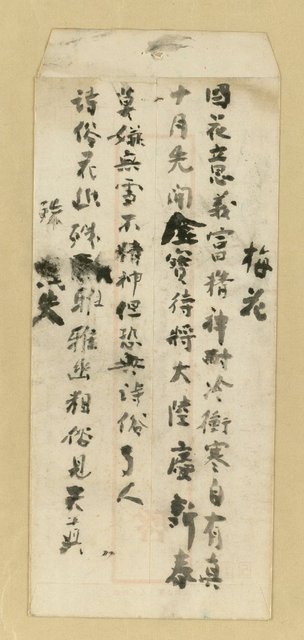 梅花
國花意義富精神耐冷衝寒自有真
十月先開金寶待將大陸慶新春
莫嫌無雪不精神但恐無詩俗了人
詩俗花幽殊雅雅幽粗俗見天真